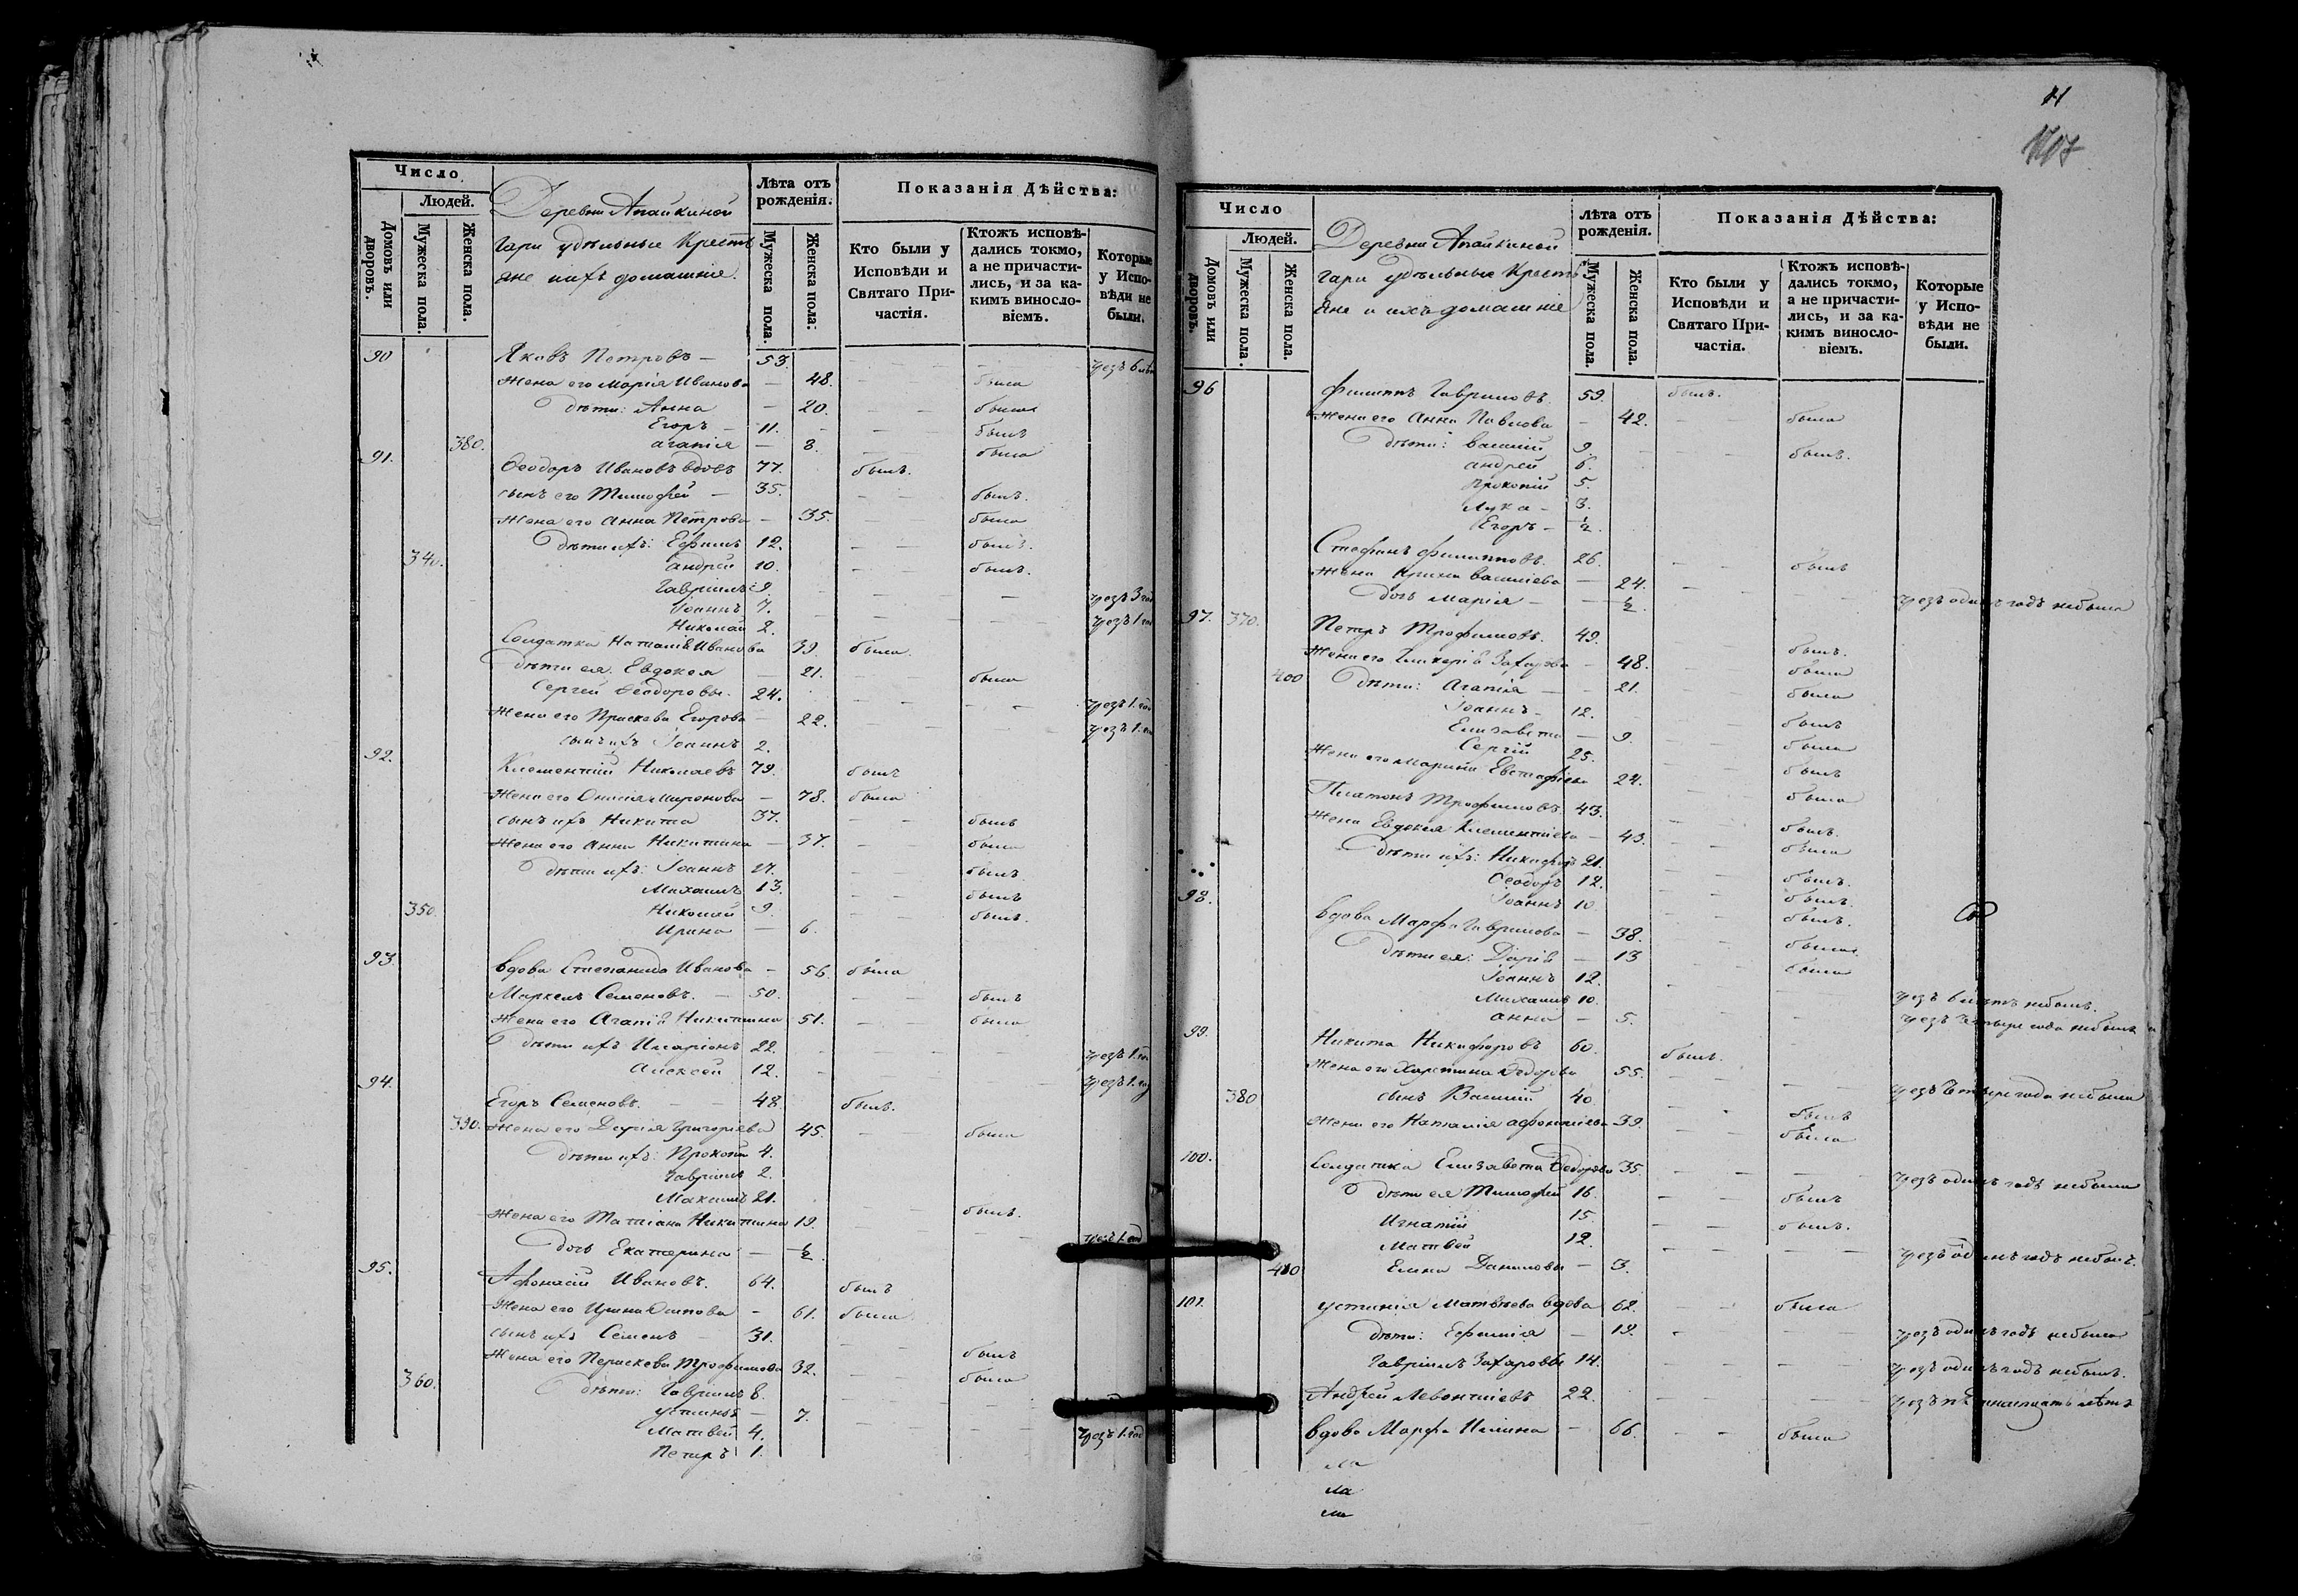 Число
Людей.
Домовъ или дворовъ.
Мужеска пола.
Женска пола.
Деревни Апайкиной
гари удѣльные Кресть
яне ихъ домашніе.
Лѣта отъ рожденія.
Мужеска пола.
Женска пола.
Показанія Дѣйства:
Кто были у Исповѣди и Святаго Причастія.
Ктожъ исповѣдались токмо, а не причастились, и за какимъ винословіемъ.
Которые у Исповѣди не были.
90 Яковъ Петровъ — 53.
Жена его Марія Иванова — 48. была
Дѣти: Анна — 20. была
Егоръ — 11. былъ
380. Агапія — 8. была
91. Ѳеодоръ Ивановъ вдовъ 77. былъ.
сынъ его Тимофей — 35. былъ.
Жена его Анна Петрова — 35. была
Дѣти ихъ: Ефимъ 12. былъ.
340. Андрей 10. былъ.
Гавріилъ 9. чрезъ 3 го
Іоаннъ 7. чрезъ 1 го
Николай 2.
Солдатка Наталія Иванова 39. была.
Дѣти ея: Евдокея — 21. была
Сергей Ѳеодоровы. 24. чрезъ 1. го
Жена его Праскева Егорова — 22. чрезъ 1.
сынъ ихъ Іоаннъ 2.
92. Климентій Николаевъ 79. былъ
Жена его Онисія Миронова — 78. была
сынъ ихъ Никита 37. былъ
Жена его Анна Никитина — 37. была
Дѣти ихъ: Іоаннъ 17. былъ
Михаилъ 13. былъ
350. Николай 9. былъ.
Ирина — 6.
93. Вдова Степанида Иванова — 56. была
Маркелъ Семеновъ. — 50. былъ
Жена его Агапія Никитина 51. была
Дѣти ихъ Иларіонъ 22. чрезъ 1. го
Алексей 12. чрезъ 1. год
94. Егоръ Семеновъ. — 48. былъ.
390. Жена его Дарія Григорьева 45. была
Дѣти ихъ: Прокопій 4.
Гавріилъ 2.
Максимъ 21. былъ.
Жена его Татіана Никитина 19.
дочь Екатерина — ½.
95. Афонасій Ивановъ. 64. былъ
Жена его Ирина Осипова — 61. была
сынъ ихъ Семенъ — 31. былъ
Жена его Параскева Трофимова 32. была
360. Дѣти: Гавріилъ 8.
Устинья — 7. чрезъ 1. год
Матвей 4.
Петръ 1.
11
107
Число
Людей.
Домовъ или дворовъ.
Мужеска пола.
Женска пола.
Деревни Апайкиной
гари удѣльные Кресть
яне и ихъ домашніе
Лѣта отъ рожденія.
Мужеска пола.
Женска пола.
Показанія Дѣйства:
Кто были у Исповѣди и Святаго Причастія.
Ктожъ исповѣдались токмо, а не причастились, и за какимъ винословіемъ.
Которые у Исповѣди не были.
96 Филиппъ Гавриловъ 59. былъ.
Жена его Анна Павлова — 42. была
Дѣти: Василій 9. былъ.
Андрей 6.
Прокопій 5.
Лука — 3.
Егоръ — ½.
Стефанъ Филипповъ. 26. былъ
Жена Ирина Васильева — 24. чрезъ одинъ годъ небыла
дочь Марія — ½.
97. 370. Петръ Трофимовъ. 49. былъ.
Жена его Гликерія Захарова — 48. была
400 Дѣти: Агапія — 21. была
Іоаннъ — 12. былъ
Елизавета — 9. была
Сергій 25. былъ
Жена его Марина Евстафіева 24. была
Платонъ Трофимовъ. 43. былъ.
Жена Евдокея Климентіева — 43. была
Дѣти ихъ: Никифоръ 21. былъ.
Ѳеодоръ 12. былъ.
Іоаннъ 10. былъ.
98. Вдова Марфа Гаврилова — 38. была
Дѣти ея: Дарія — 13 была
Іоаннъ 12.
Михаилъ 10.
Анна — 5.
99. Никита Никифоровъ 60. былъ.
Жена его Харетина Ѳедорова 55. чрезъ четыре года небыла
380 сынъ Василій 40. былъ
Жена его Наталія Афонасіева 39. была
100. Солдатка Елизавета Ѳедорова 35. чрезъ одинъ годъ небыла
Дѣти ея Тимофей 16. былъ
Игнатій 15. былъ.
Матвей 12. чрезъ одинъ годъ небылъ.
410 Елена Даниловы — 3.
101. Устинія Матвѣева вдова 62. была
Дѣти: Ефимія — 19. чрезъ одинъ годъ небыла
Гавріилъ Захаровы 14. чрезъ одинъ годъ небылъ.
Андрей Левонтіевъ 22.
Вдова Марфа Ильина — 66. была
ла
ла
ла